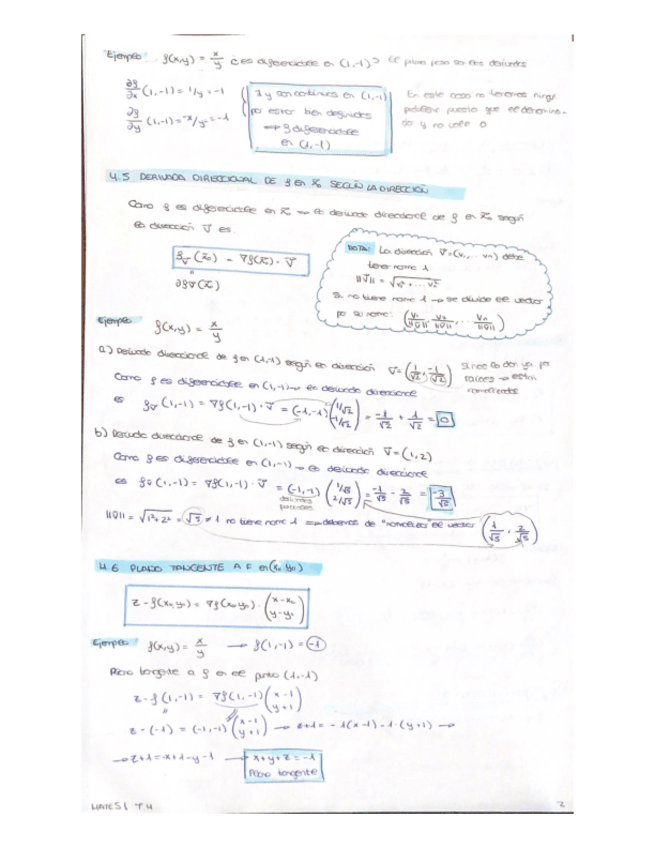 Ejemplo f(x,y) = x/y ¿es diferenciable en (1,-1)? El primer paso son las derivadas
∂f/∂x (1,-1) = 1/y = -1
∂f/∂y (1,-1) = -x/y² = -1
∃ y son continuas en (1,-1)
por estar bien definidas
⟹ f diferenciable
en (1,-1)
En este caso no tenemos ningún
problema puesto que el denomina-
dor y no vale 0
4.5 DERIVADA DIRECCIONAL DE f EN x̄₀ SEGÚN LA DIRECCIÓN
Como f es diferenciable en x̄₀ → la derivada direccional de f en x̄₀ según
la dirección v̄ es:
f_v̄ (x̄₀) = ∇f(x̄₀) · v̄
∂f v̄ (x̄₀)
NOTA: La dirección v̄ = (v₁, ... vn) debe
tener norma 1
||v̄|| = √v₁² + ... vn²
Si no tiene norma 1 → se divide el vector
por su norma: (v₁/||v̄||, v₂/||v̄||, ... vn/||v̄||)
Ejemplo f(x,y) = x/y
a) Derivada direccional de f en (1,-1) según la dirección v̄ = (1/√2, -1/√2)
Si nos la dan ya por
raíces → están
normalizadas
Como f es diferenciable en (1,-1) → la derivada direccional
es f_v̄ (1,-1) = ∇f(1,-1) · v̄ = (-1,-1) (1/√2 -1/√2) = -1/√2 + 1/√2 = 0
b) Derivada direccional de f en (1,-1) según la dirección v̄ = (1,2)
Como f es diferenciable en (1,-1) → la derivada direccional
es f_v̄ (1,-1) = ∇f(1,-1) · v̄ = (-1,-1) (1/√5 2/√5) = -1/√5 - 2/√5 = -3/√5
derivadas
parciales
||v̄|| = √1²+2² = √5 ≠ 1 no tiene norma 1 ⟹ debemos de "normalizar" el vector (1/√5, 2/√5)
4.6 PLANO TANGENTE A F en (x₀,y₀)
z - f(x₀,y₀) = ∇f(x₀,y₀) · (x-x₀ y-y₀)
Ejemplo f(x,y) = x/y → f(1,-1) = -1
Plano tangente a f en el punto (1,-1)
z - f(1,-1) = ∇f(1,-1) (x-1 y+1)
z - (-1) = (-1,-1) (x-1 y+1) → z+1 = -1(x-1) -1·(y+1) →
→ z+1 = -x+1-y-1 → x+y+z = -1
Plano tangente
MATES I T4
2